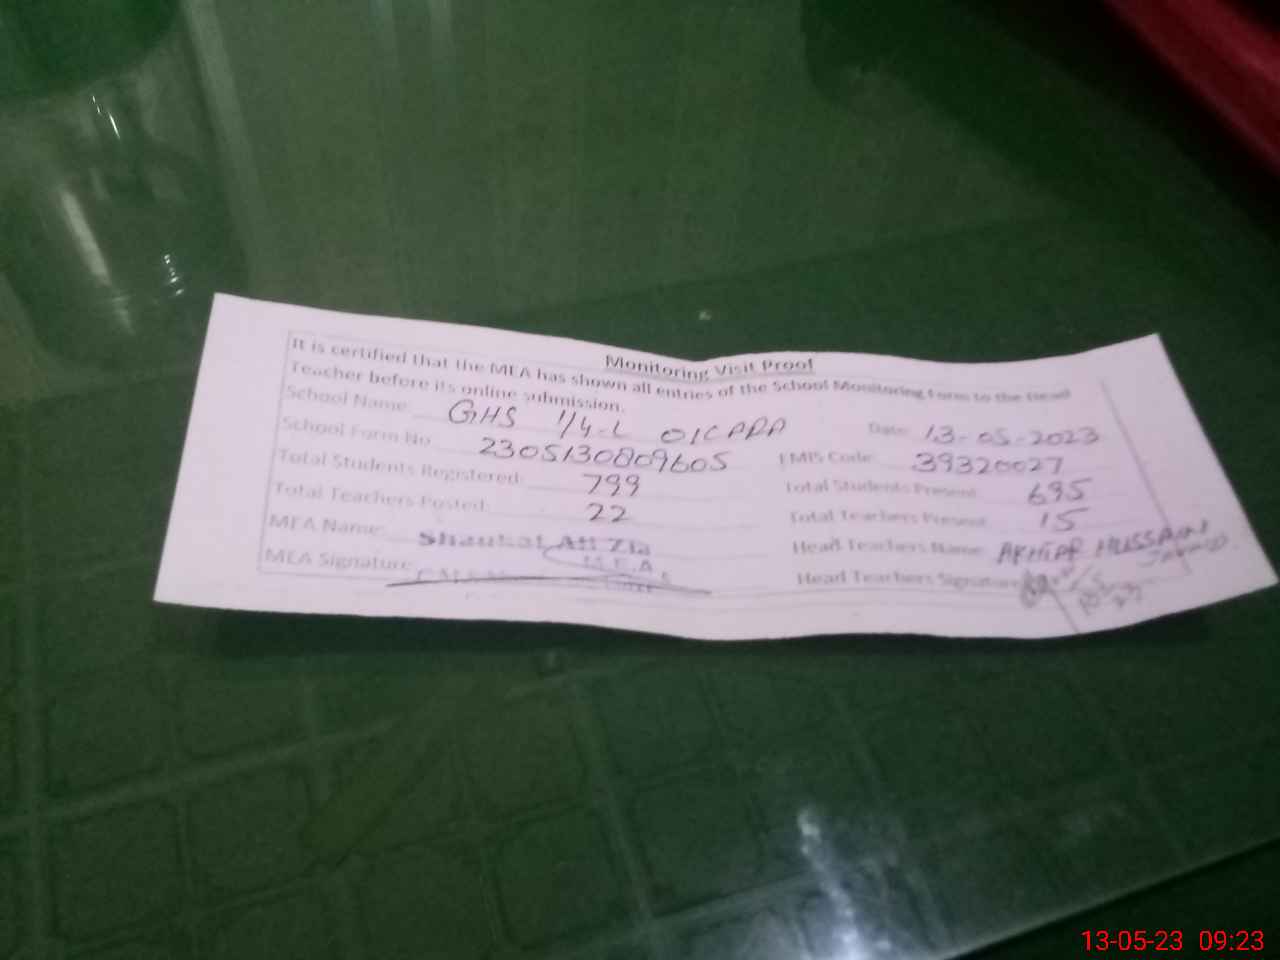 Monitoring Visit Proof
It is certified that the MEA has shown all entries of the School Monitoring Form to the Head
Teacher before its online submission.
School Name: GHS 1/4-L OKARA Date: 13-05-2023
School Form No. 2305130809605 EMIS Code: 39320027
Total Students Registered: 799 Total Students Present: 695
Total Teachers Posted: 22 Total Teachers Present: 15
MEA Name: Shaukat Ali Zia Head Teachers Name: HUSSAIN
M.E.A
MEA Signature: Head Teachers Signature
13-05-23 09:23